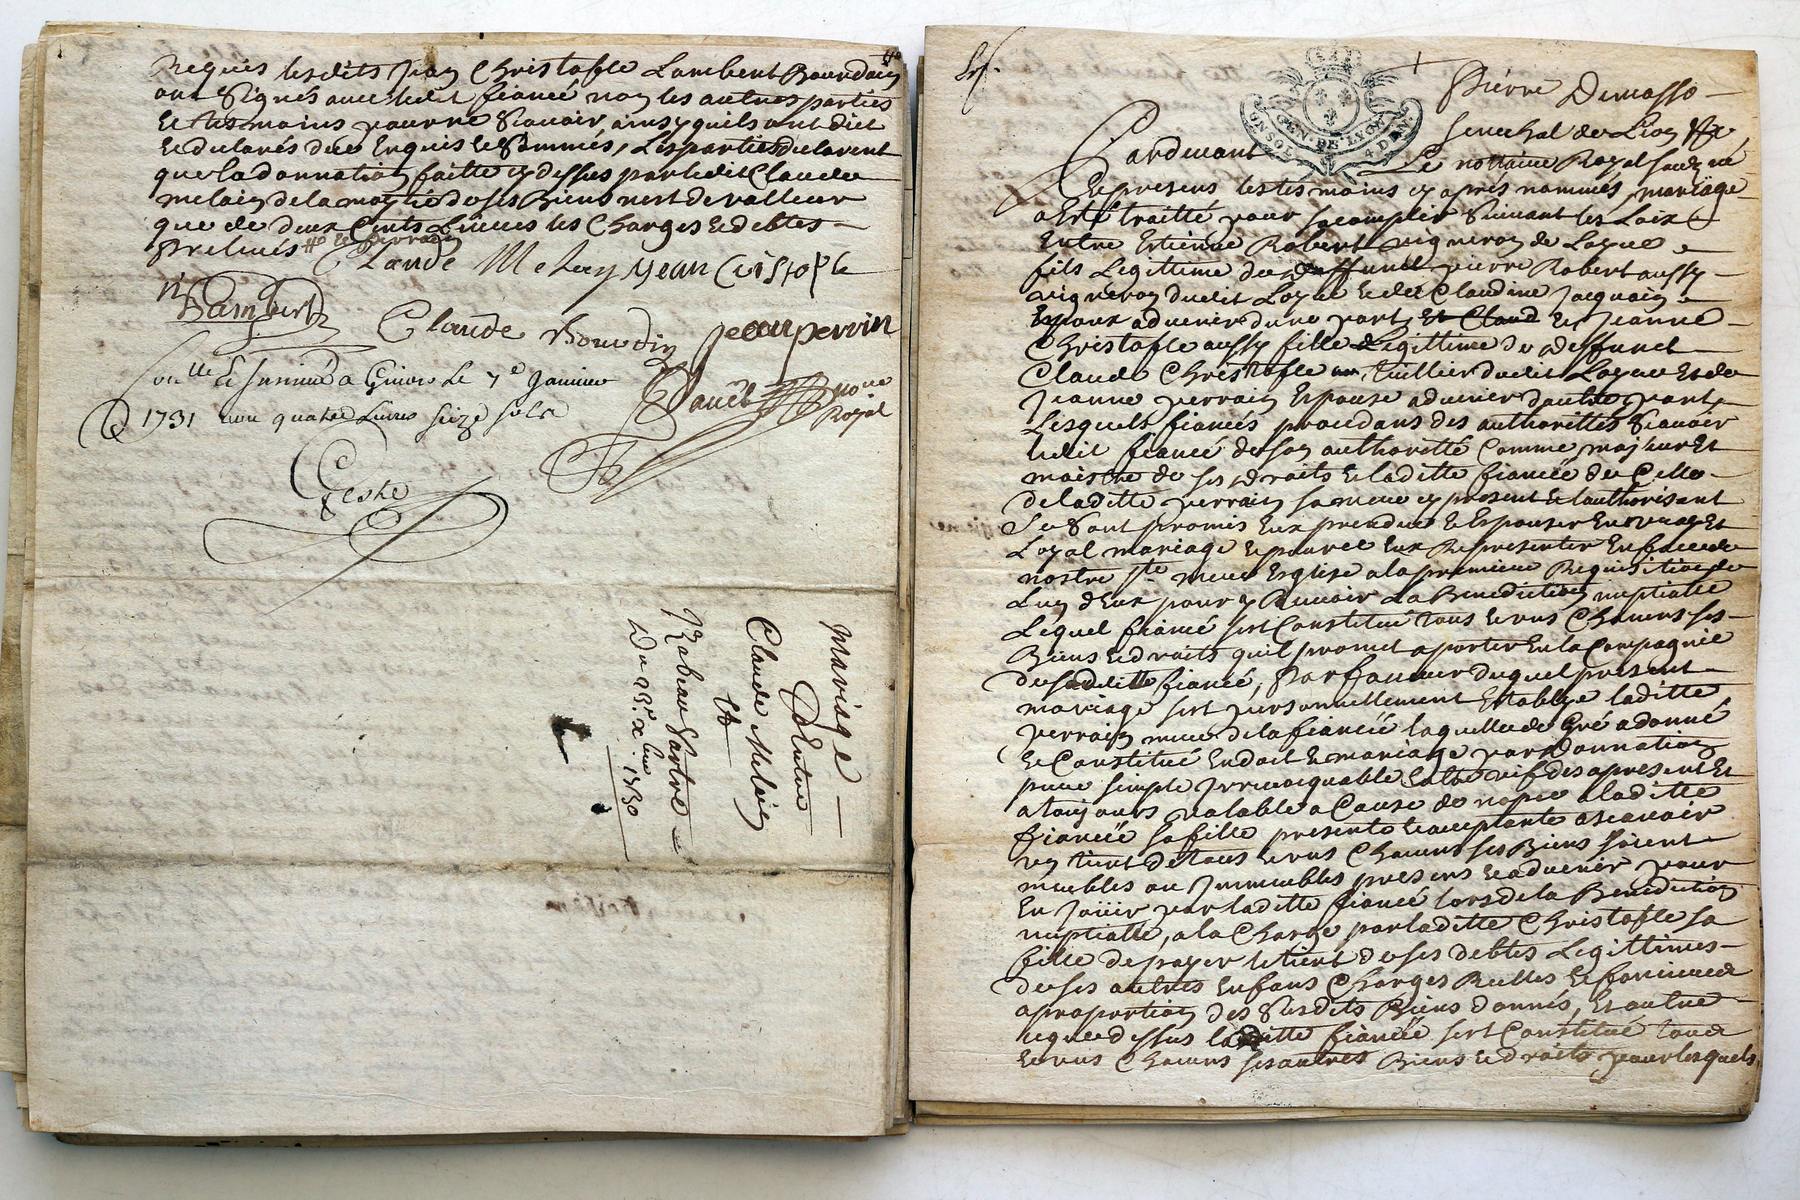 Requis lesdits Jean Christofle Lambert Bourdain
ont Signés avec ledit fiancé non les autres parties
et tesmoins pour ne Scavoir ainsy quils ont dict
et declarés de ce Enquis et Sommés, Les parties declarent
que la donnation faitte cy dessus par ledit Claude
melain de la moytié de ses Biens nest de valleur
que de deux Cents Livres les Charges et debtes
prelevés
Claude Melay Jean Cristople
Lambert
Claude Bourdin Jean pervin
Con.lle et Insinué a Givors Le 7e Janvier
1731 Receu quatre Livres seize sols
no.re
Royal
Mariage
D'Entre
Claude Melain
Et
Izabeau
Du 1730
Pierre Demasso
Senechal de Lion
GEN. DE LYON
Pardevant Le nottaire Royal Soubzné
Et presens les tesmoins cy apres nommés, mariage
a Esté traitté pour Saccomplir Suivant les Loix
Entre Estienne Robert vigneron de Loyse
fils Legittime de deffunct pierre Robert aussy
vigneron dudit Loyse et de Claudine Jacquain
Espoux advenir dune part, Et Claud et Jeanne
Christofle aussy fille Legittime de deffunct
Claude Christofle Tuillier dudit Loyse Et de
Jeanne perrain Espouse advenir dautre part,
Lesquels fiancés procedans des authorittés Scavoir
ledit fiancé de son authoritté Comme majeur Et
maistre de ses droits et laditte fiancée de Celle
de laditte perrain sa mere cy present et lauthorisant
Se Sont promis Eux prendre et Espouser En vray Et
Loyal mariage et pour ce Eux Representer En face de
nostre Ste mere Esglise a la premiere Requisition de
Lun dEux pour y Recevoir La Benediction nuptialle
Lequel fiancé sest Constitué tous et uns Chacuns ses
Biens et droits quil promet aporter En la Compagnie
de sadditte fiancée, Par faveur duquel present
mariage sest personnellement Establye laditte
perrain mere de la fiancée laquelle de Gré a donné
et Constitué En dot et mariage par donnation
pure simple Irrevoquable Entre vifs des apresent Et
a toujours valable a Cause de nopce a laditte
fiancée sa fille presente et acceptante a scavoir
un tiers de tous et uns Chacuns ses Biens soient
meubles ou Immeubles presens et advenir pour
En Joüir par laditte fiancée lors de la Benediction
nuptialle, a la Charge par laditte Christofle sa
fille de payer le tiers de ses debtes Legittimes
de ses autres Enfans Charges Reelles et foncieres
a proportion des Susdits Biens donnés, Et outre
ce que dessus laditte fiancée sest Constitué tous
et uns Chacuns ses autres Biens et droits pour lesquels